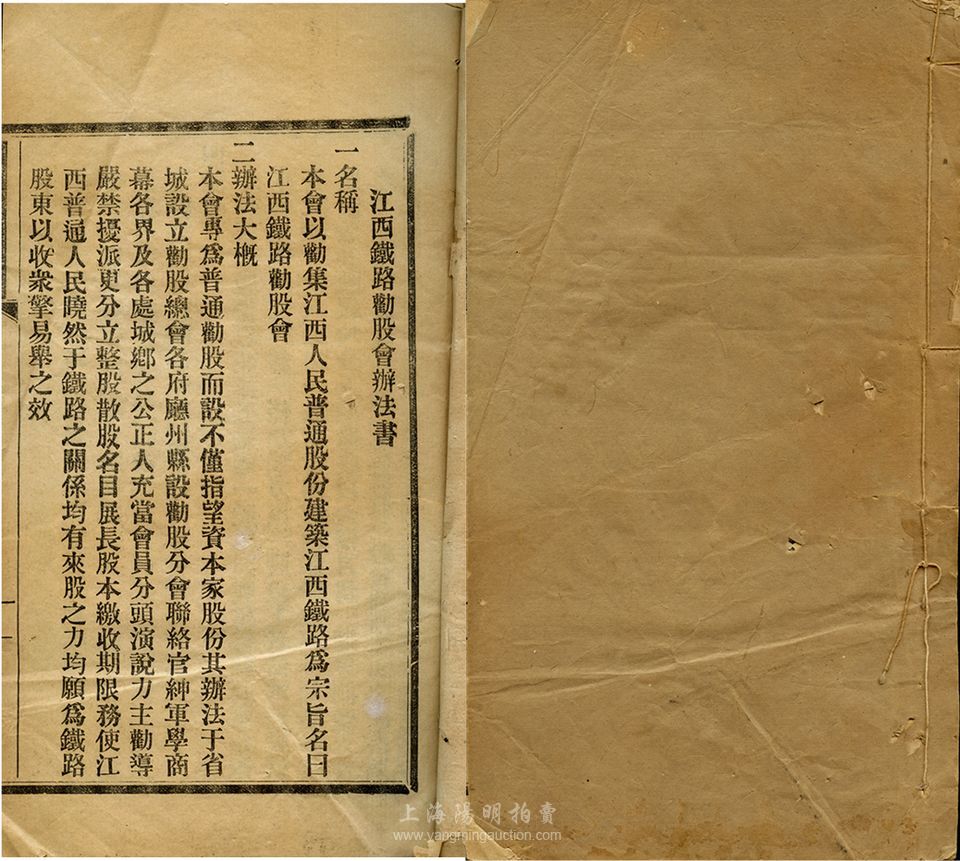 江西鐵路勸股會辦法書
一名稱
本會以勸集江西人民普通股份建築江西鐵路爲宗旨名曰
江西鐵路勸股會
二辦法大槪
本會專爲普通勸股而設不僅指望資本家股份其辦法于省
城設立勸股總會各府廳州縣設勸股分會聯絡官紳軍學商
幕各界及各處城鄕之公正人充當會員分頭演說力主勸導
嚴禁擾派更分立整股散股名目展長股本繳收期限務使江
西普通人民曉然于鐵路之關係均有來股之力均願爲鐵路
股東以收衆擎易舉之效
上海陽明拍賣
www.yangmingauction.com